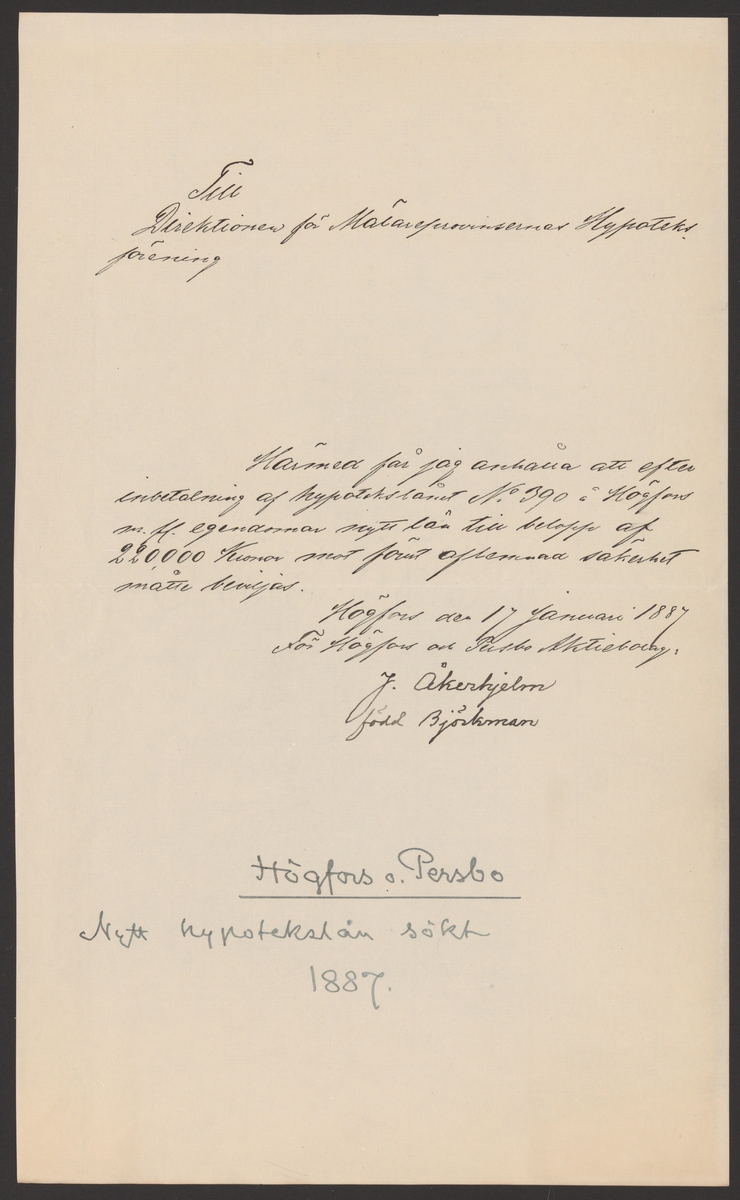 Till
Direktionen för Mälareprovinsernas Hypoteks
förening
Härmed får jag anhålla att efter
inbetalning af hypotekslånet No 390 å Högfors
m. fl. egendomar nytt lån till belopp af
220,000 Kronor mot förut aflemnad säkerhet
måtte beviljas.
Högfors den 17 Januari 1887
För Högfors och Persbo Aktiebolag:
J. Åkerhjelm
född Björkman
Högfors o. Persbo
Nytt hypotekslån sökt
1887.